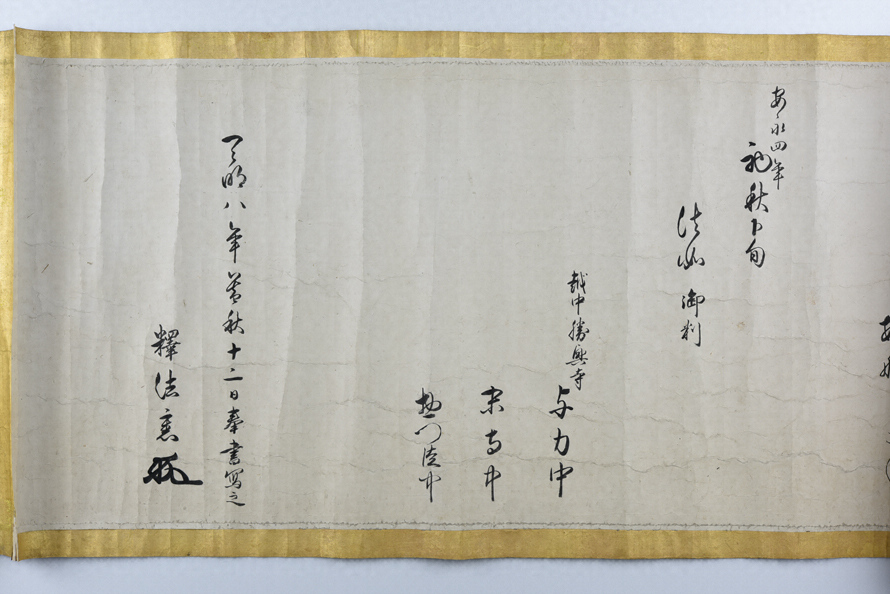 安永四年
初秋下旬
法如 御判
越中勝興寺
与力中
末寺中
惣門徒中
天明八年暮秋十二日奉書写之
釋法